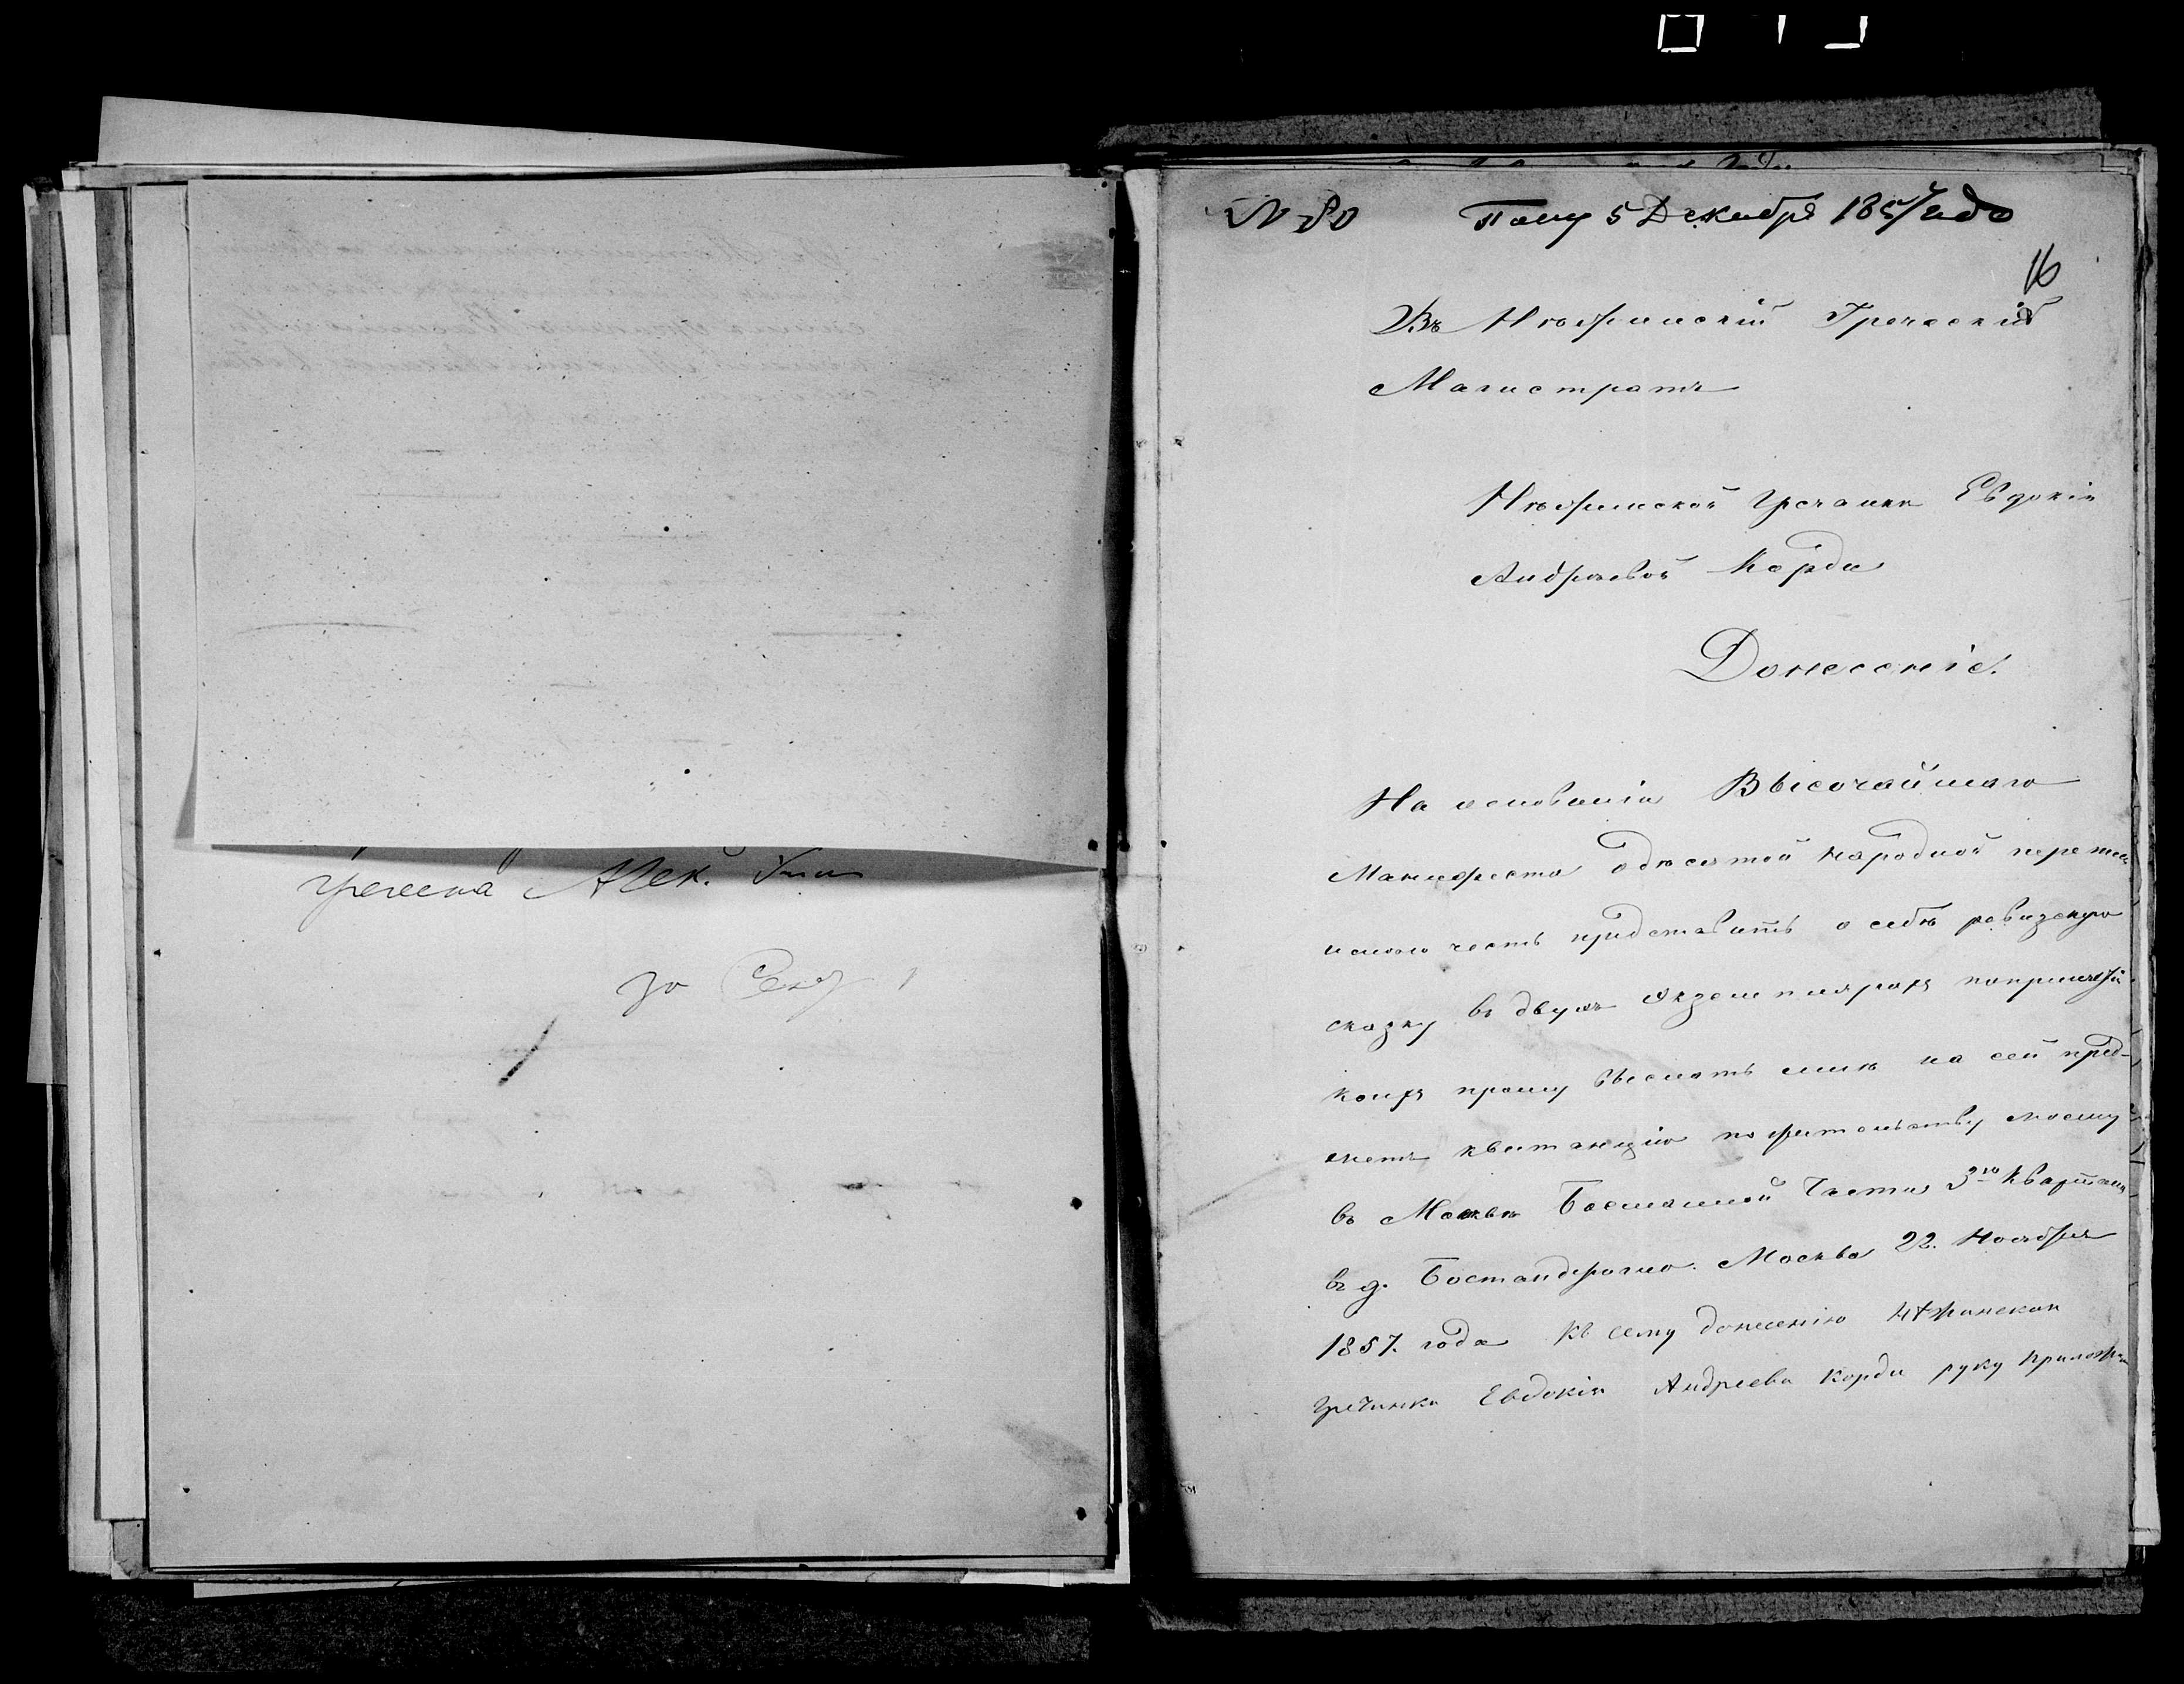 Гречесна Алек.
за Секр
№ 80 Полу 5 Декабря 1857 года
16
Въ Нѣжинскій Греческій
Магистратъ
Нѣжинской Гречанки Евдокіи
Андреевой Корди
Донесеніе.
На основаніи Высочайшаго
Манифеста о десятой народной переписи
имѣю честь представить о себѣ ревизскую
сказку въ двухъ экземплярахъ
коихъ прошу выслать мнѣ на сей пред-
метъ квитанцію по жительству моему
въ Москвѣ Басманной Части 3го Квартала
въ д. Москва 22. Ноября
1857. года Къ сему донесенію Нѣжинская
Гречанка Евдокія Андреева Корди руку приложила